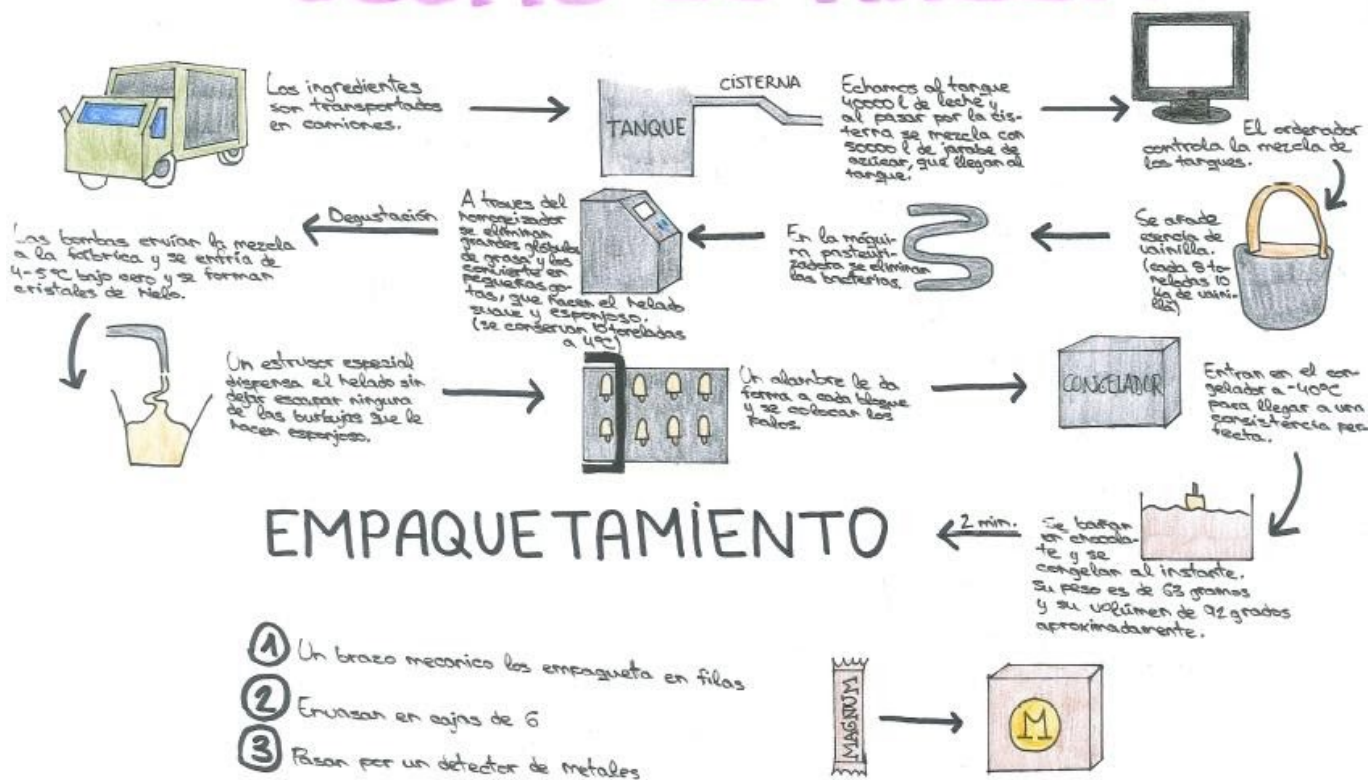 Los ingredientes
son transportados
en camiones.
TANQUE
CISTERNA
Echamos al tanque
40000 l de leche y
al pasar por la cis-
terna se mezcla con
50000 l de jarabe de
azúcar, que llegan al
tanque.
El ordenador
controla la mezcla de
los tanques.
Se añade
esencia de
vainilla.
(cada 8 to-
neladas 10
kg de vaini-
lla)
En la máqui-
na pasteuri-
zadora se eliminan
las bacterias.
A traves del
homogeizador
se eliminan
grandes glóbulos
de grasa y los
convierte en
pequeñas go-
tas, que hacen el helado
suave y esponjoso.
(se conservan 10 toneladas
a 4ºC)
Degustación
Las bombas envían la mezcla
a la fábrica y se enfría de
4-5ºC bajo cero y se forman
cristales de hielo.
Un estrusor espezial
dispensa el helado sin
dejar escapar ninguna
de las burbujas que le
hacen esponjoso.
Un alambre le da
forma a cada bloque
y se colocan los
palos.
CONGELADOR
Entran en el con-
gelador a -40ºC
para llegar a una
consistencia per-
fecta.
Se bañan
en chocola-
te y se
congelan al instante.
Su peso es de 63 gramos
y su volúmen de 92 grados
aproximadamente.
2 min.
EMPAQUETAMIENTO
1 Un brazo mecanico los empaqueta en filas
2 Envasan en cajas de 6
3 Pasan por un detector de metales
MAGNUM
M